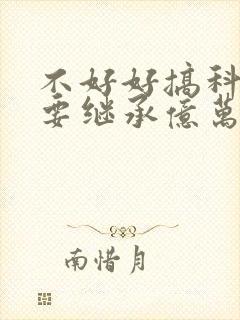 不好好搞科
要继承億萬
南惜月